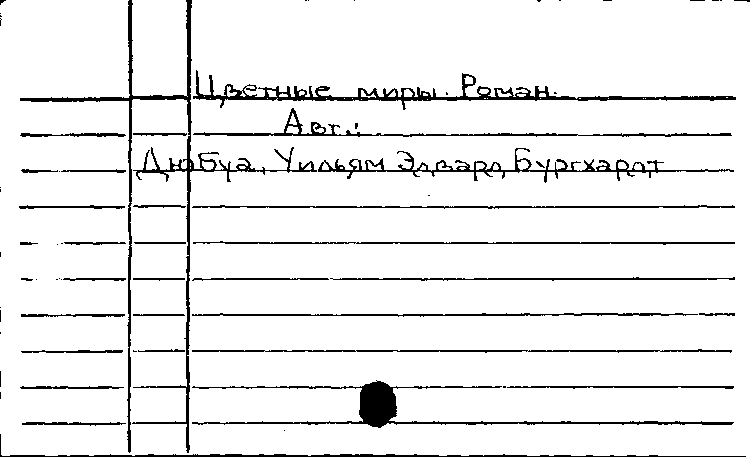 Цветные миры. Роман.
Авт.:
Дюбуа, Уильям Эдвард Бургхардт